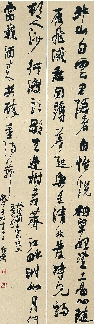 北山白雲裏隱者自怡悅相望登高心隨
雁飛滅愁因薄暮起興是清秋發時見歸
村人沙行渡頭歇天邊樹若薺江畔洲如月何
當載酒來共醉重陽節